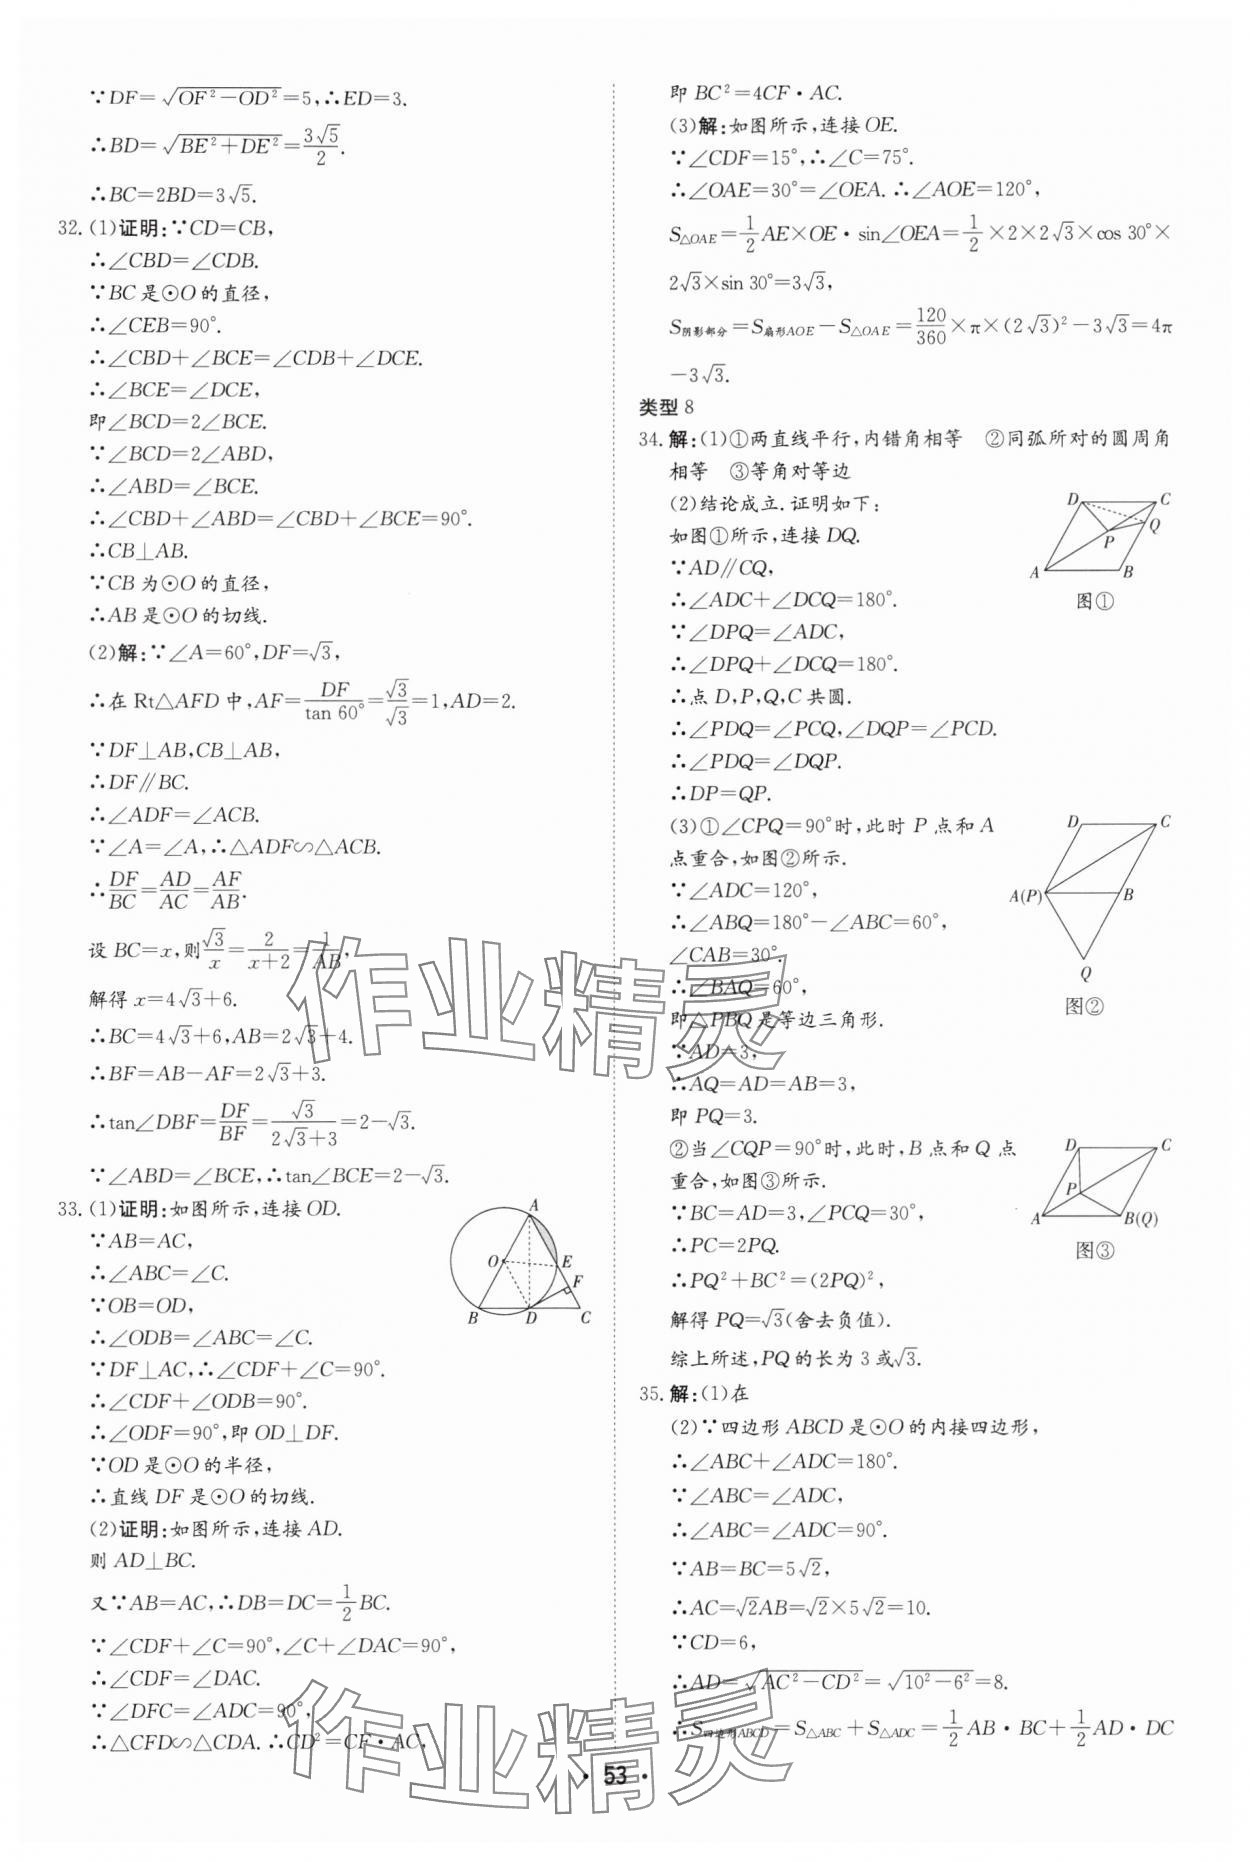 ∵DF=√(OF²−OD²)=5,∴ED=3.
∴BD=√(BE²+DE²)=3√5/2.
∴BC=2BD=3√5.
32.(1)证明:∵CD=CB,
∴∠CBD=∠CDB.
∵BC是⊙O的直径,
∴∠CEB=90°.
∴∠CBD+∠BCE=∠CDB+∠DCE.
∴∠BCE=∠DCE,
即∠BCD=2∠BCE.
∵∠BCD=2∠ABD,
∴∠ABD=∠BCE.
∴∠CBD+∠ABD=∠CBD+∠BCE=90°.
∴CB⊥AB.
∵CB为⊙O的直径,
∴AB是⊙O的切线.
(2)解:∵∠A=60°,DF=√3,
∴在Rt△AFD中,AF=DF/tan 60°=√3/√3=1,AD=2.
∵DF⊥AB,CB⊥AB,
∴DF∥BC.
∴∠ADF=∠ACB.
∵∠A=∠A,∴△ADF∽△ACB.
∴DF/BC=AD/AC=AF/AB.
设BC=x,则√3/x=2/(x+2)=1/AB,
解得x=4√3+6.
∴BC=4√3+6,AB=2√3+4.
∴BF=AB−AF=2√3+3.
∴tan∠DBF=DF/BF=√3/(2√3+3)=2−√3.
∵∠ABD=∠BCE,∴tan∠BCE=2−√3.
33.(1)证明:如图所示,连接OD.
∵AB=AC,
∴∠ABC=∠C.
∵OB=OD,
∴∠ODB=∠ABC=∠C.
∵DF⊥AC,∴∠CDF+∠C=90°.
∴∠CDF+∠ODB=90°.
∴∠ODF=90°,即OD⊥DF.
∵OD是⊙O的半径,
∴直线DF是⊙O的切线.
A
O
E
F
B
D
C
(2)证明:如图所示,连接AD.
则AD⊥BC.
又∵AB=AC,∴DB=DC=1/2BC.
∵∠CDF+∠C=90°,∠C+∠DAC=90°,
∴∠CDF=∠DAC.
∵∠DFC=∠ADC=90°,
∴△CFD∽△CDA.∴CD²=CF·AC,
即BC²=4CF·AC.
(3)解:如图所示,连接OE.
∵∠CDF=15°,∴∠C=75°.
∴∠OAE=30°=∠OEA.∴∠AOE=120°,
S△OAE=1/2AE×OE·sin∠OEA=1/2×2×2√3×cos 30°×
2√3×sin 30°=3√3,
S阴影部分=S扇形AOE−S△OAE=120/360×π×(2√3)²−3√3=4π
−3√3.
类型8
34.解:(1)①两直线平行,内错角相等 ②同弧所对的圆周角
相等 ③等角对等边
(2)结论成立.证明如下:
如图①所示,连接DQ.
∵AD∥CQ,
∴∠ADC+∠DCQ=180°.
∵∠DPQ=∠ADC,
∴∠DPQ+∠DCQ=180°.
∴点D,P,Q,C共圆.
∴∠PDQ=∠PCQ,∠DQP=∠PCD.
∴∠PDQ=∠DQP.
∴DP=QP.
D
C
P
Q
A
B
图①
(3)①∠CPQ=90°时,此时P点和A
点重合,如图②所示.
∵∠ADC=120°,
∴∠ABQ=180°−∠ABC=60°,
∠CAB=30°.
∴∠BAQ=60°,
即△PBQ是等边三角形.
∵AD=3,
∴AQ=AD=AB=3,
即PQ=3.
D
C
A(P)
B
Q
图②
②当∠CQP=90°时,此时,B点和Q点
重合,如图③所示.
∵BC=AD=3,∠PCQ=30°,
∴PC=2PQ.
∴PQ²+BC²=(2PQ)²,
解得PQ=√3(舍去负值).
综上所述,PQ的长为3或√3.
D
C
P
A
B(Q)
图③
35.解:(1)在
(2)∵四边形ABCD是⊙O的内接四边形,
∴∠ABC+∠ADC=180°.
∵∠ABC=∠ADC,
∴∠ABC=∠ADC=90°.
∵AB=BC=5√2,
∴AC=√2AB=√2×5√2=10.
∵CD=6,
∴AD=√(AC²−CD²)=√(10²−6²)=8.
∴S四边形ABCD=S△ABC+S△ADC=1/2AB·BC+1/2AD·DC
·53·
作业精灵
作业精灵